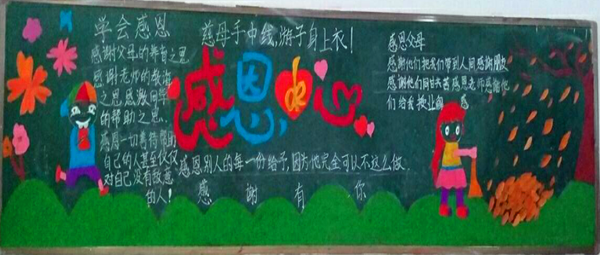 学会感恩
感谢父母的养育之恩
感谢老师的教诲
之恩感激同学
的帮助之恩。
感恩一切善待帮助
自己的人甚至仅仅
对自己没有敌意
的人!
慈母手中线,游子身上衣!
感恩的心
感恩别人的每一份给予,因为他完全可以不这么做.
感谢有你
感恩父母
感谢他们把我们带到人间感谢
感谢他们
们给